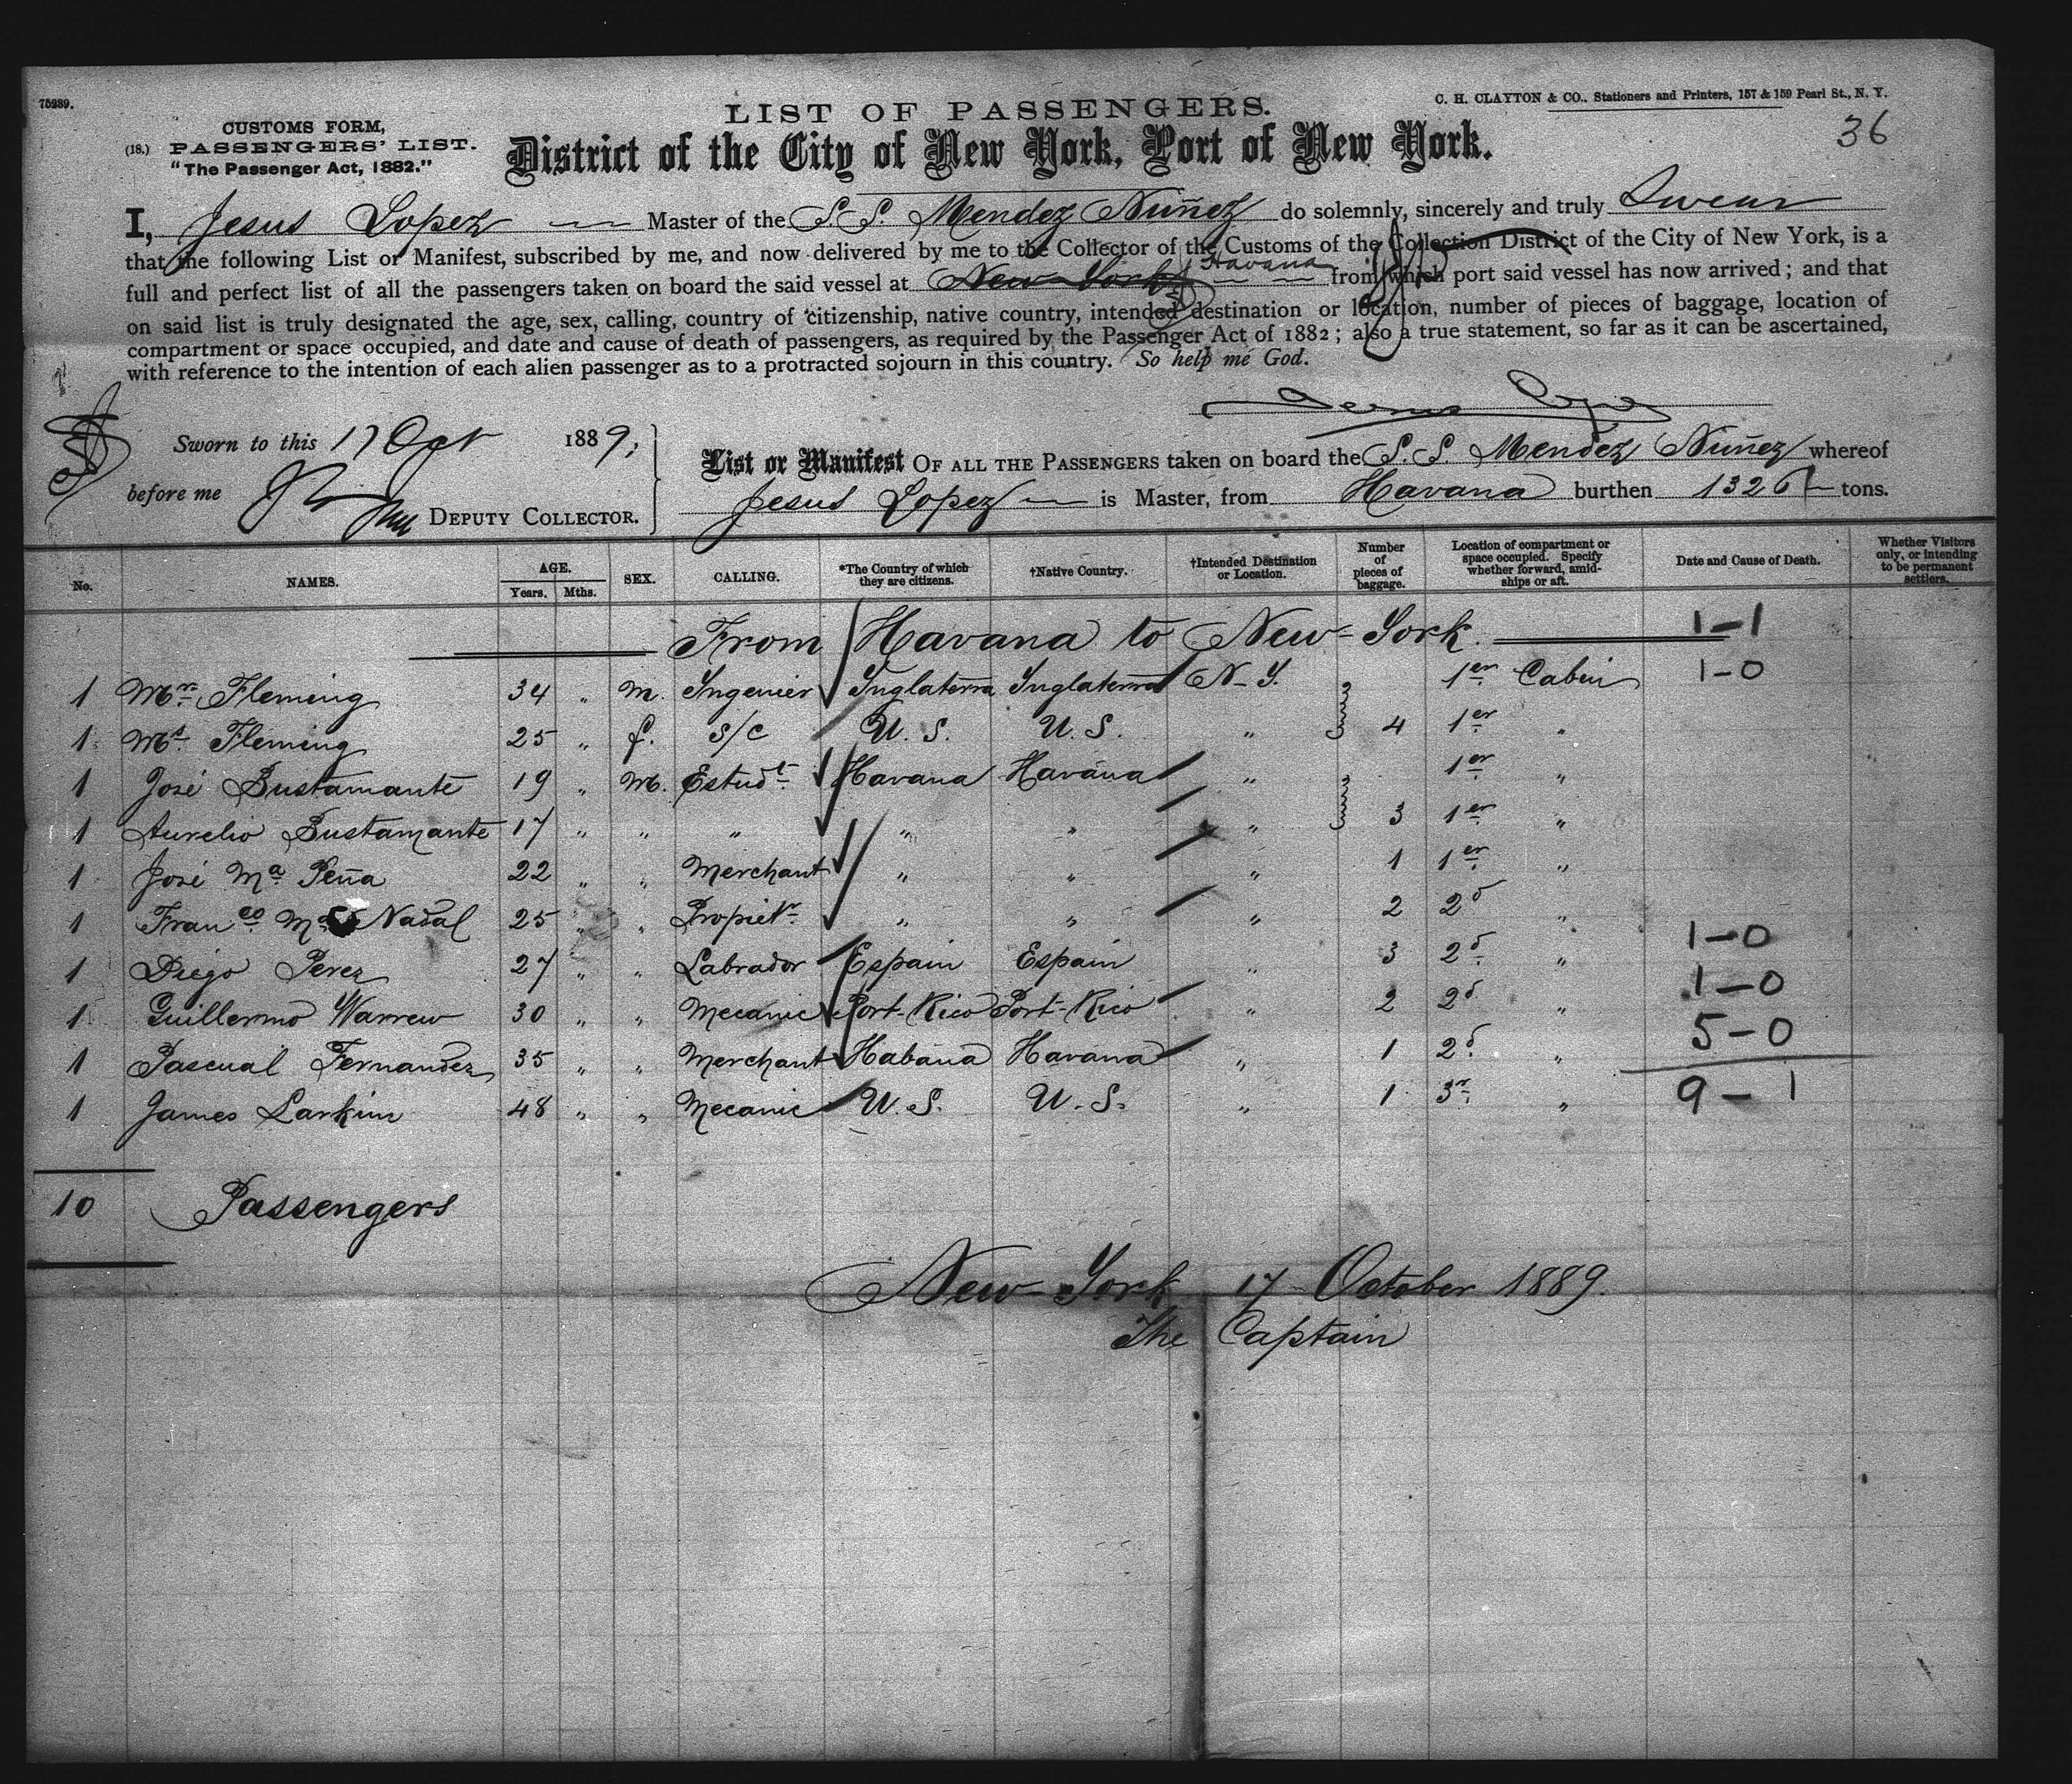 75289.
LIST OF PASSENGERS.
C. H. CLAYTON & CO., Stationers and Printers, 157 & 159 Pearl St., N. Y.
36
CUSTOMS FORM,
(18.) PASSENGERS' LIST.
"The Passenger Act, 1882."
District of the City of New York, Port of New York.
I, Jesus Lopez Master of the S.S. Mendez Nuñez do solemnly, sincerely and truly Swear
that the following List or Manifest, subscribed by me, and now delivered by me to the Collector of the Customs of the Collection District of the City of New York, is a
full and perfect list of all the passengers taken on board the said vessel at New York Havana from which port said vessel has now arrived; and that
on said list is truly designated the age, sex, calling, country of citizenship, native country, intended destination or location, number of pieces of baggage, location of
compartment or space occupied, and date and cause of death of passengers, as required by the Passenger Act of 1882; also a true statement, so far as it can be ascertained,
with reference to the intention of each alien passenger as to a protracted sojourn in this country. So help me God.
Jesus Lopez
Sworn to this 17 Oct 1889;
before me DEPUTY COLLECTOR.
List or Manifest OF ALL THE PASSENGERS taken on board the S.S. Mendez Nuñez whereof
Jesus Lopez is Master, from Havana burthen 1326 tons.
No. NAMES. AGE. Years. Mths. SEX. CALLING. *The Country of which they are citizens. †Native Country. †Intended Destination or Location. Number of pieces of baggage. Location of compartment or space occupied. Specify whether forward, amidships or aft. Date and Cause of Death. Whether Visitors only, or intending to be permanent settlers.
From Havana to New-York. 1-1
1 Mr. Fleming 34 " m. Ingenier Inglaterra Inglaterra N-Y. 1er Cabin 1-0
1 Ms. Fleming 25 " f. s/c U.S. U.S. " 4 1er "
1 José Bustamante 19 " M. Estudt Havana Havana " 1er "
1 Aurelio Bustamante 17 " " " " " " 3 1er "
1 José Ma Peña 22 " " Merchant " " " 1 1er "
1 Franco Ma Nadal 25 " " Propietr " " " 2 2d "
1 Diego Perez 27 " " Labrador Espain Espain " 3 2d " 1-0
1 Guillermo Warrew 30 " " Mecanic Port-Rico Port-Rico " 2 2d " 1-0
1 Pascual Fernandez 35 " " Merchant Habana Havana " 1 2d " 5-0
1 James Larkim 48 " " Mecanic U.S. U.S. " 1 3r " 9-1
10 Passengers
New-York 17 October 1889.
The Captain